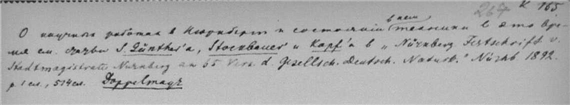 264 К 165
О научных работах в Нюрнберге и состоянии в нем техники в это вре-
мя см. S Günther'a, Stockbauer' и Kapf'a в „Nürnberg Festschrift v.
Stadtmagistrate Nürnberg an 65 Vers. d. Gesellsch. Deutsch. Naturf." Nürnb 1892.
p 1 сл., 574 сл. Doppelmayr